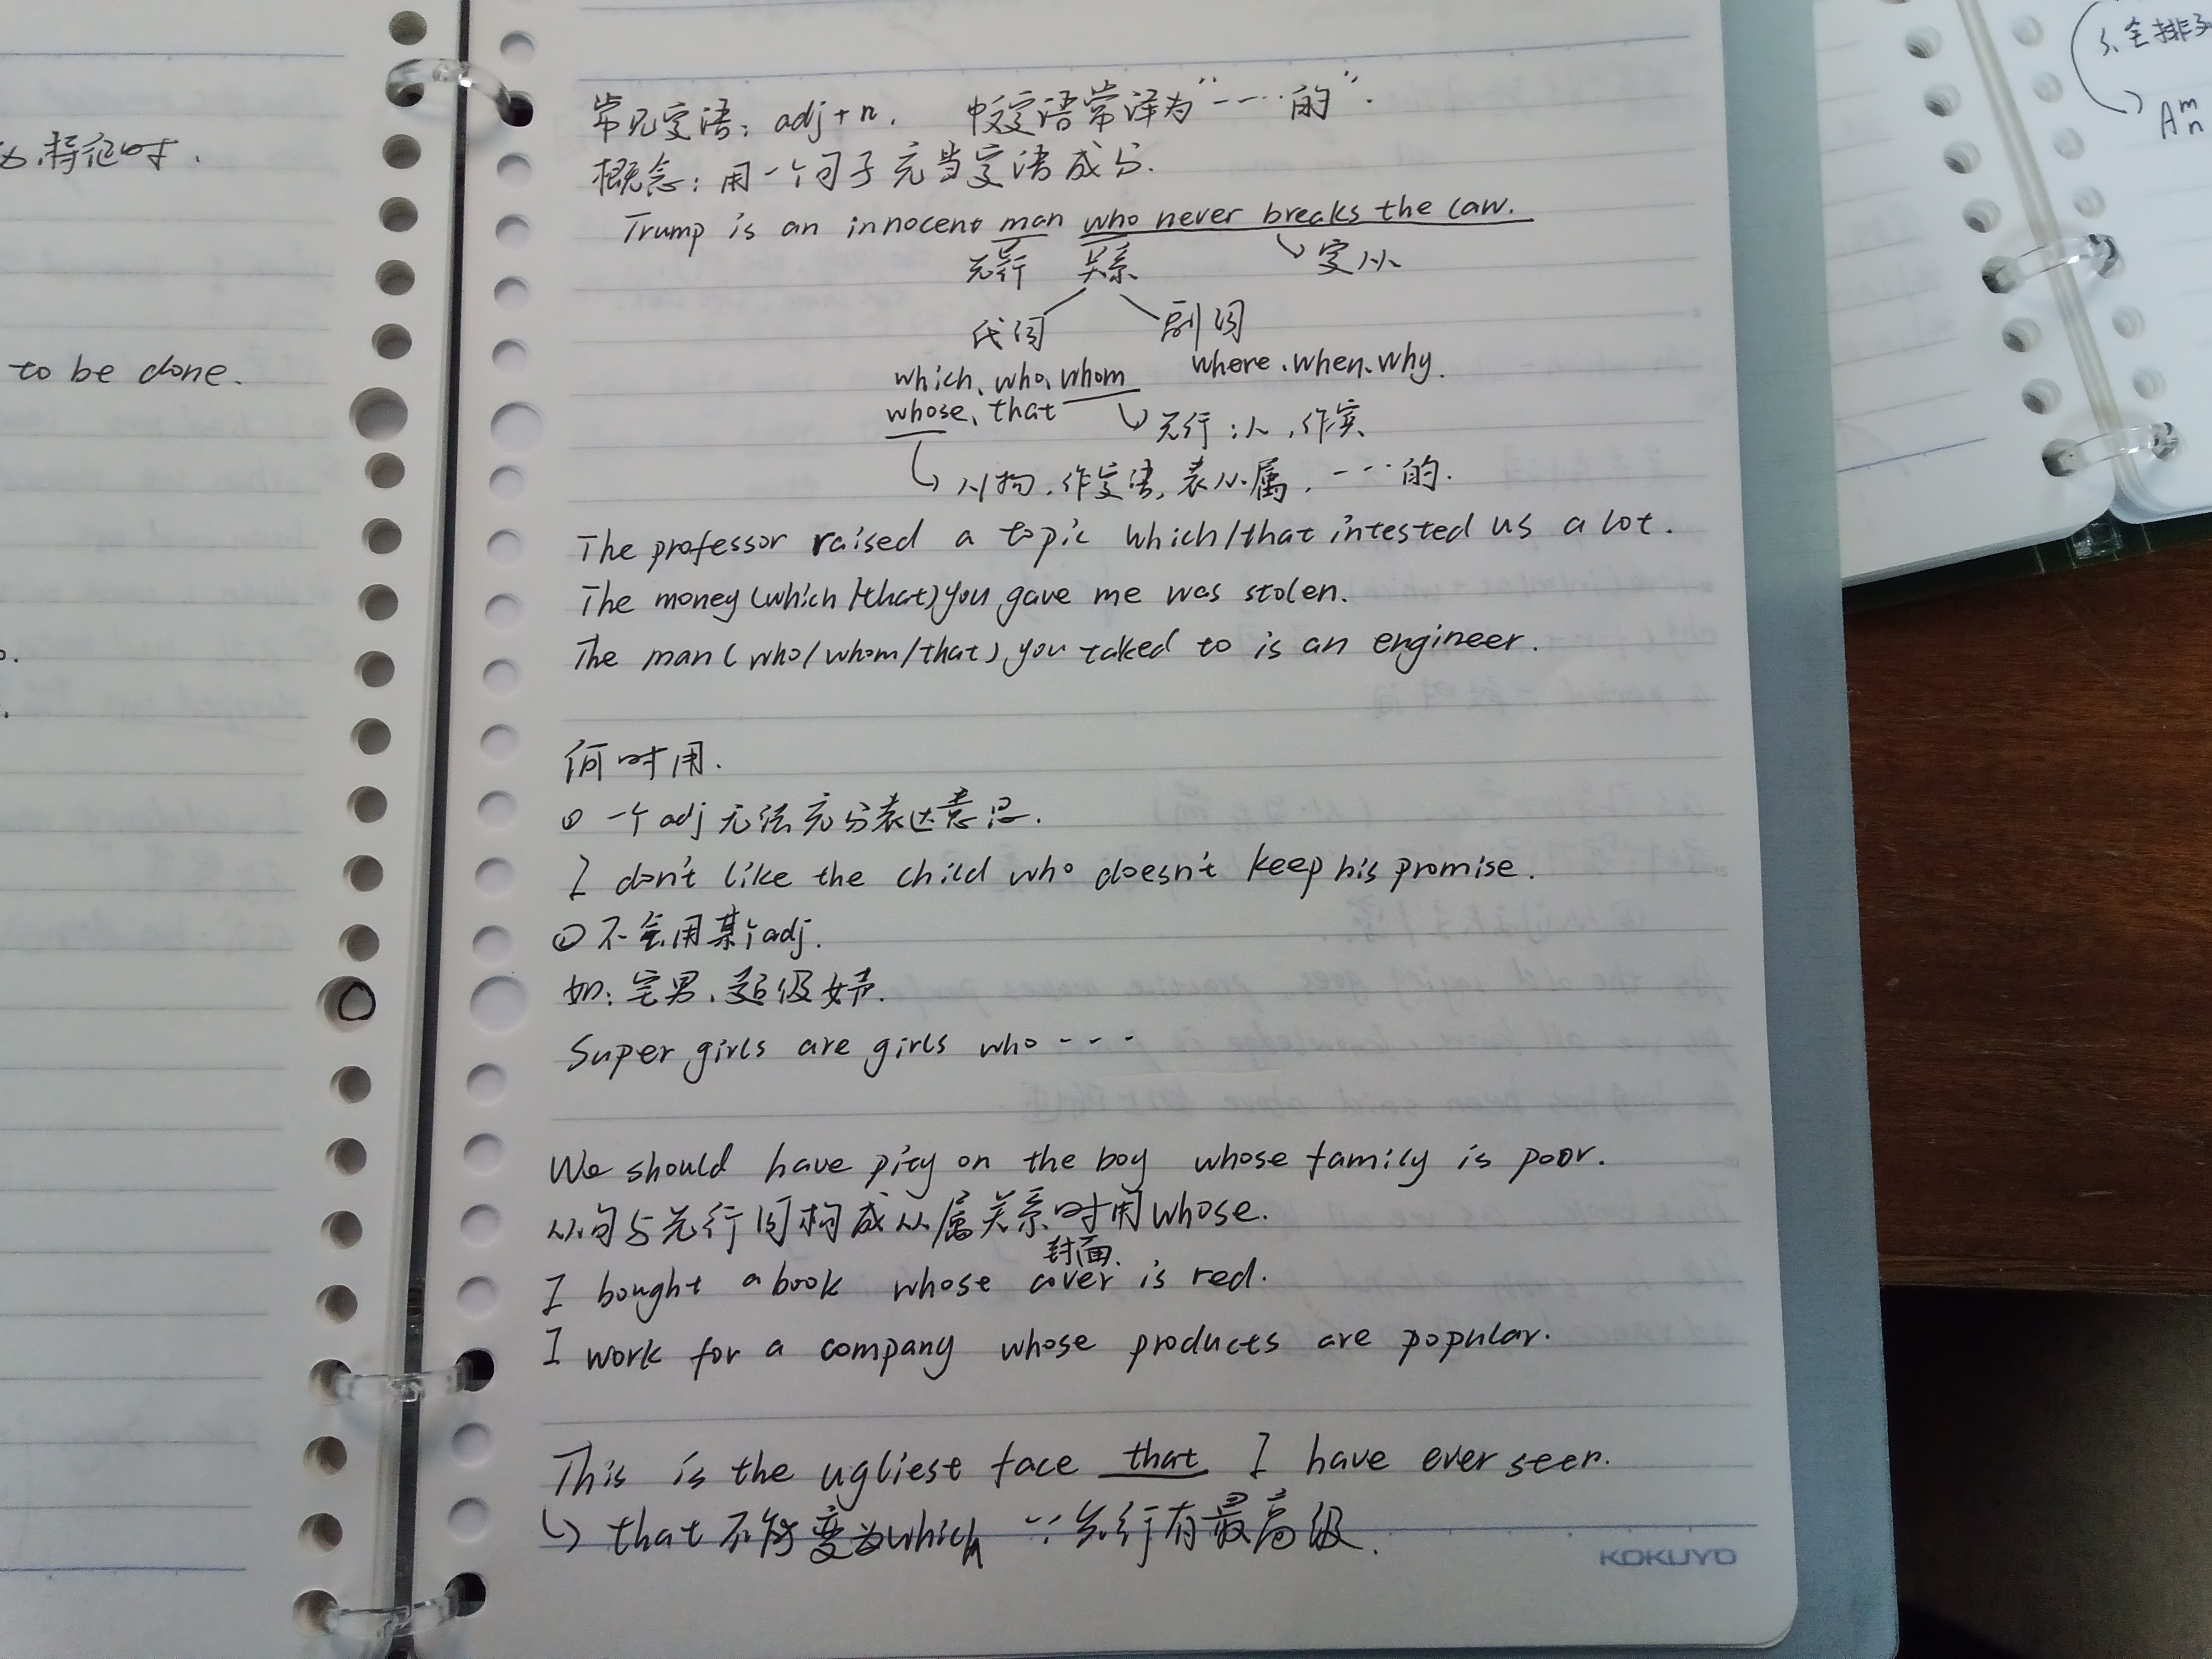 为特征时.
to be done.
常见定语: adj+n. 中文定语常译为"……的".
概念: 用一个句子充当定语成分.
Trump is an innocent man who never breaks the law.
先行 关系 定从
代词 副词
which、who、whom where、when、why.
whose、that
先行:人,作宾
人/物,作定语,表从属,……的.
The professor raised a topic which/that intested us a lot.
The money(which/that)you gave me was stolen.
The man(who/whom/that)you talked to is an engineer.
何时用.
① 一个adj无法充分表达意思.
I don't like the child who doesn't keep his promise.
② 不会用某个adj.
如: 宅男、超级女声.
Super girls are girls who ---
We should have pity on the boy whose family is poor.
从句与先行词构成从属关系时用whose.
封面.
I bought a book whose cover is red.
I work for a company whose products are popular.
This is the ugliest face that I have ever seen.
that不能变为which ∵先行有最高级.
KOKUYO
3、全排列
Amn